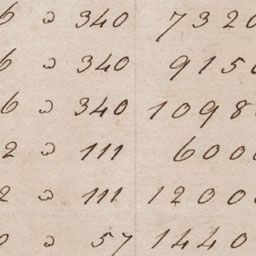 6 a 340 7320
6 a 340 9150
6 a 340 1098
2 a 111 600
2 a 111 1200
0 a 57 1440